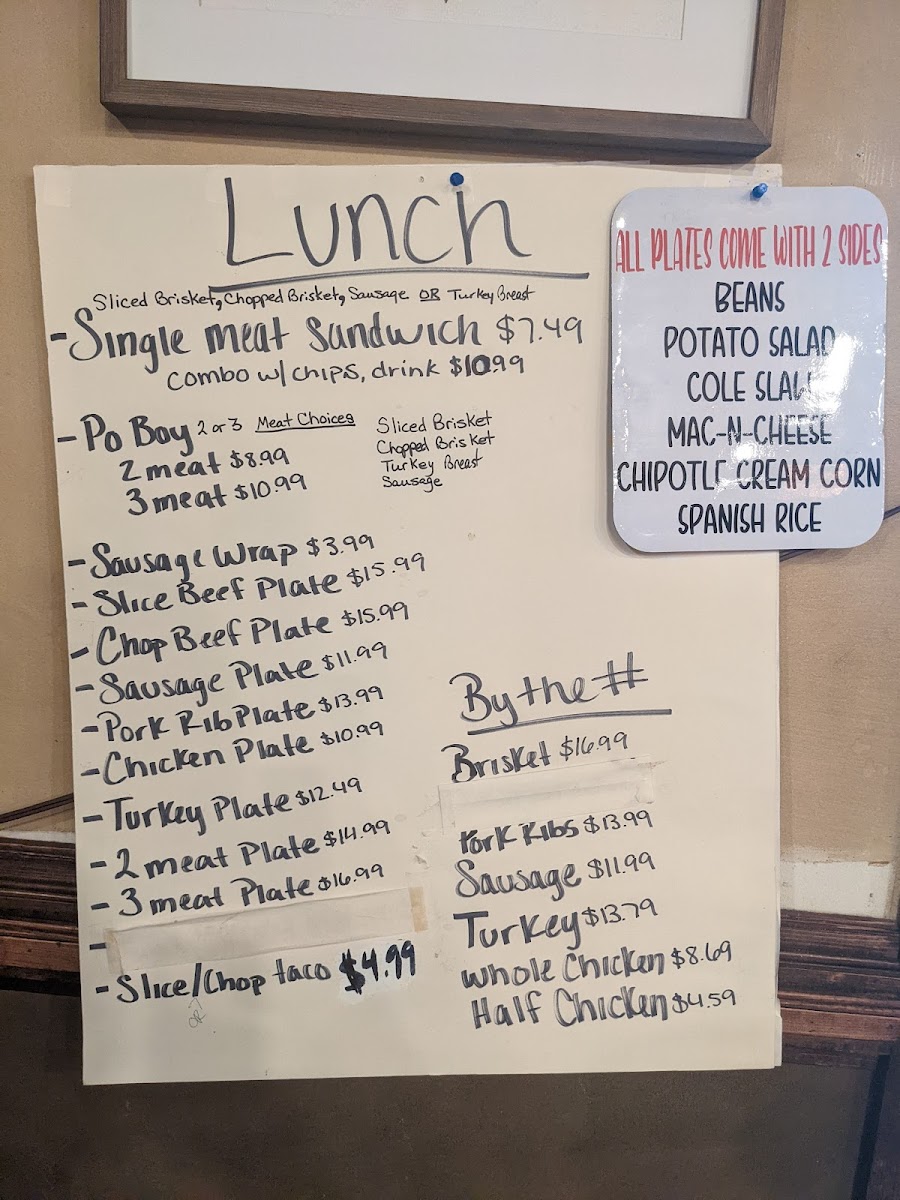 Lunch
Sliced Brisket, Chopped Brisket, Sausage OR Turkey Breast
- Single meat Sandwich $7.49
combo w/ chips, drink $10.99
- Po Boy 2 or 3 Meat Choices
2 meat $8.99
3 meat $10.99
Sliced Brisket
Chopped Brisket
Turkey Breast
Sausage
- Sausage Wrap $3.99
- Slice Beef Plate $15.99
- Chop Beef Plate $15.99
- Sausage Plate $11.99
- Pork Rib Plate $13.99
- Chicken Plate $10.99
- Turkey Plate $12.49
- 2 meat Plate $14.99
- 3 meat Plate $16.99
-
- Slice/Chop taco $4.99
OR
By the #
Brisket $16.99
Pork Ribs $13.99
Sausage $11.99
Turkey $13.79
Whole Chicken $8.69
Half Chicken $4.59
ALL PLATES COME WITH 2 SIDES
BEANS
POTATO SALAD
COLE SLAW
MAC-N-CHEESE
CHIPOTLE CREAM CORN
SPANISH RICE